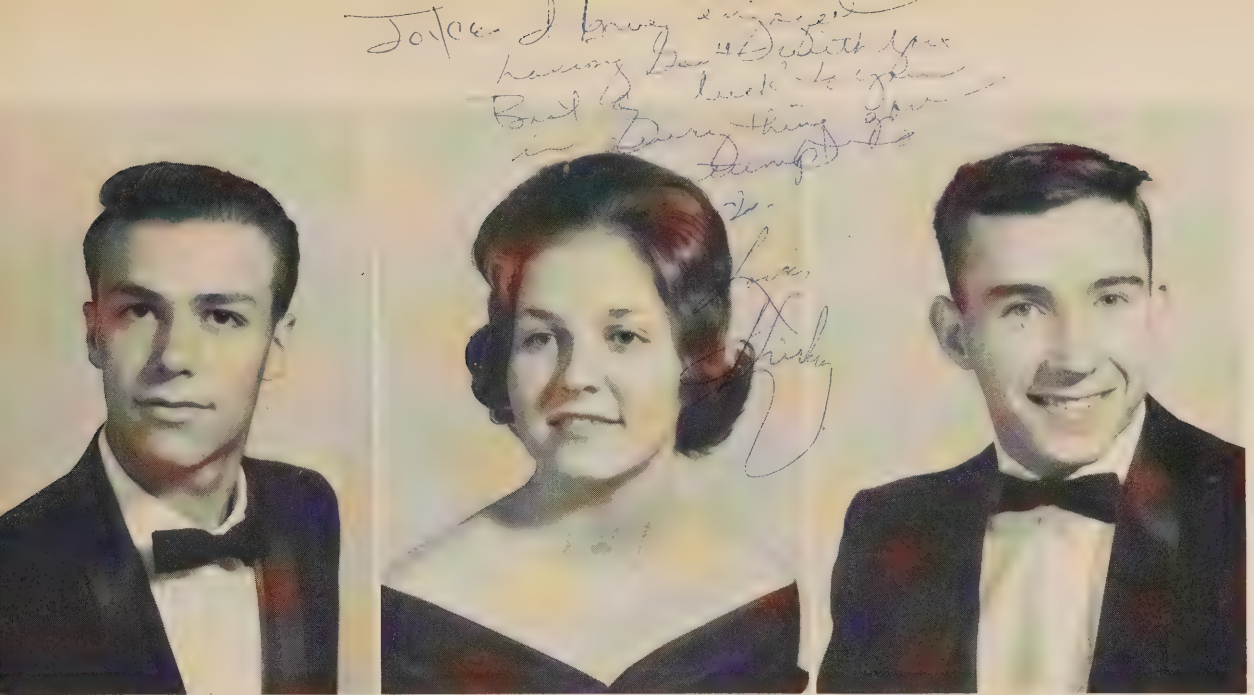 Joyce I have enjoyed
having Dr. Ed with you
Best of luck to you
in Everything you
attempt to
do.
Love,
Shirley